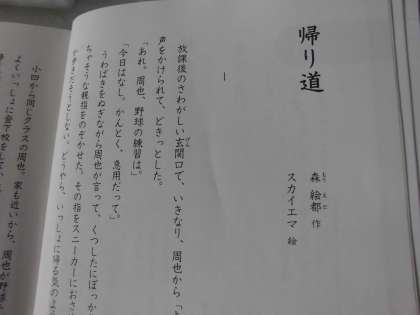 帰り道
森 絵都 作
スカイエマ 絵
1
放課後のさわがしい玄関口で、いきなり、周也から「
声をかけられて、どきっとした。
「あれ。周也、野球の練習は。」
「今日はなし。かんとく、急用だって。」
うわばきをぬぎながら周也が言って、くつしたにぽっか
ちゃそうな親指をのぞかせた。その指をスニーカーにおさ
か歩きだそうとしない。どうやら、いっしょに帰る気のよ
小四から同じクラスの周也。家も近いから、周也が野球
よくいっしょに登下校をして